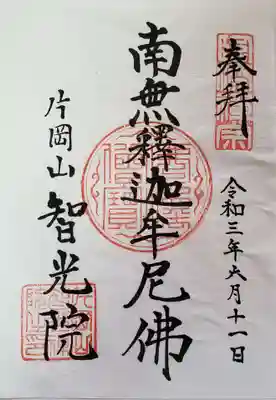 奉拝
令和三年六月十一日
南無釋迦牟尼佛
片岡山 智光院